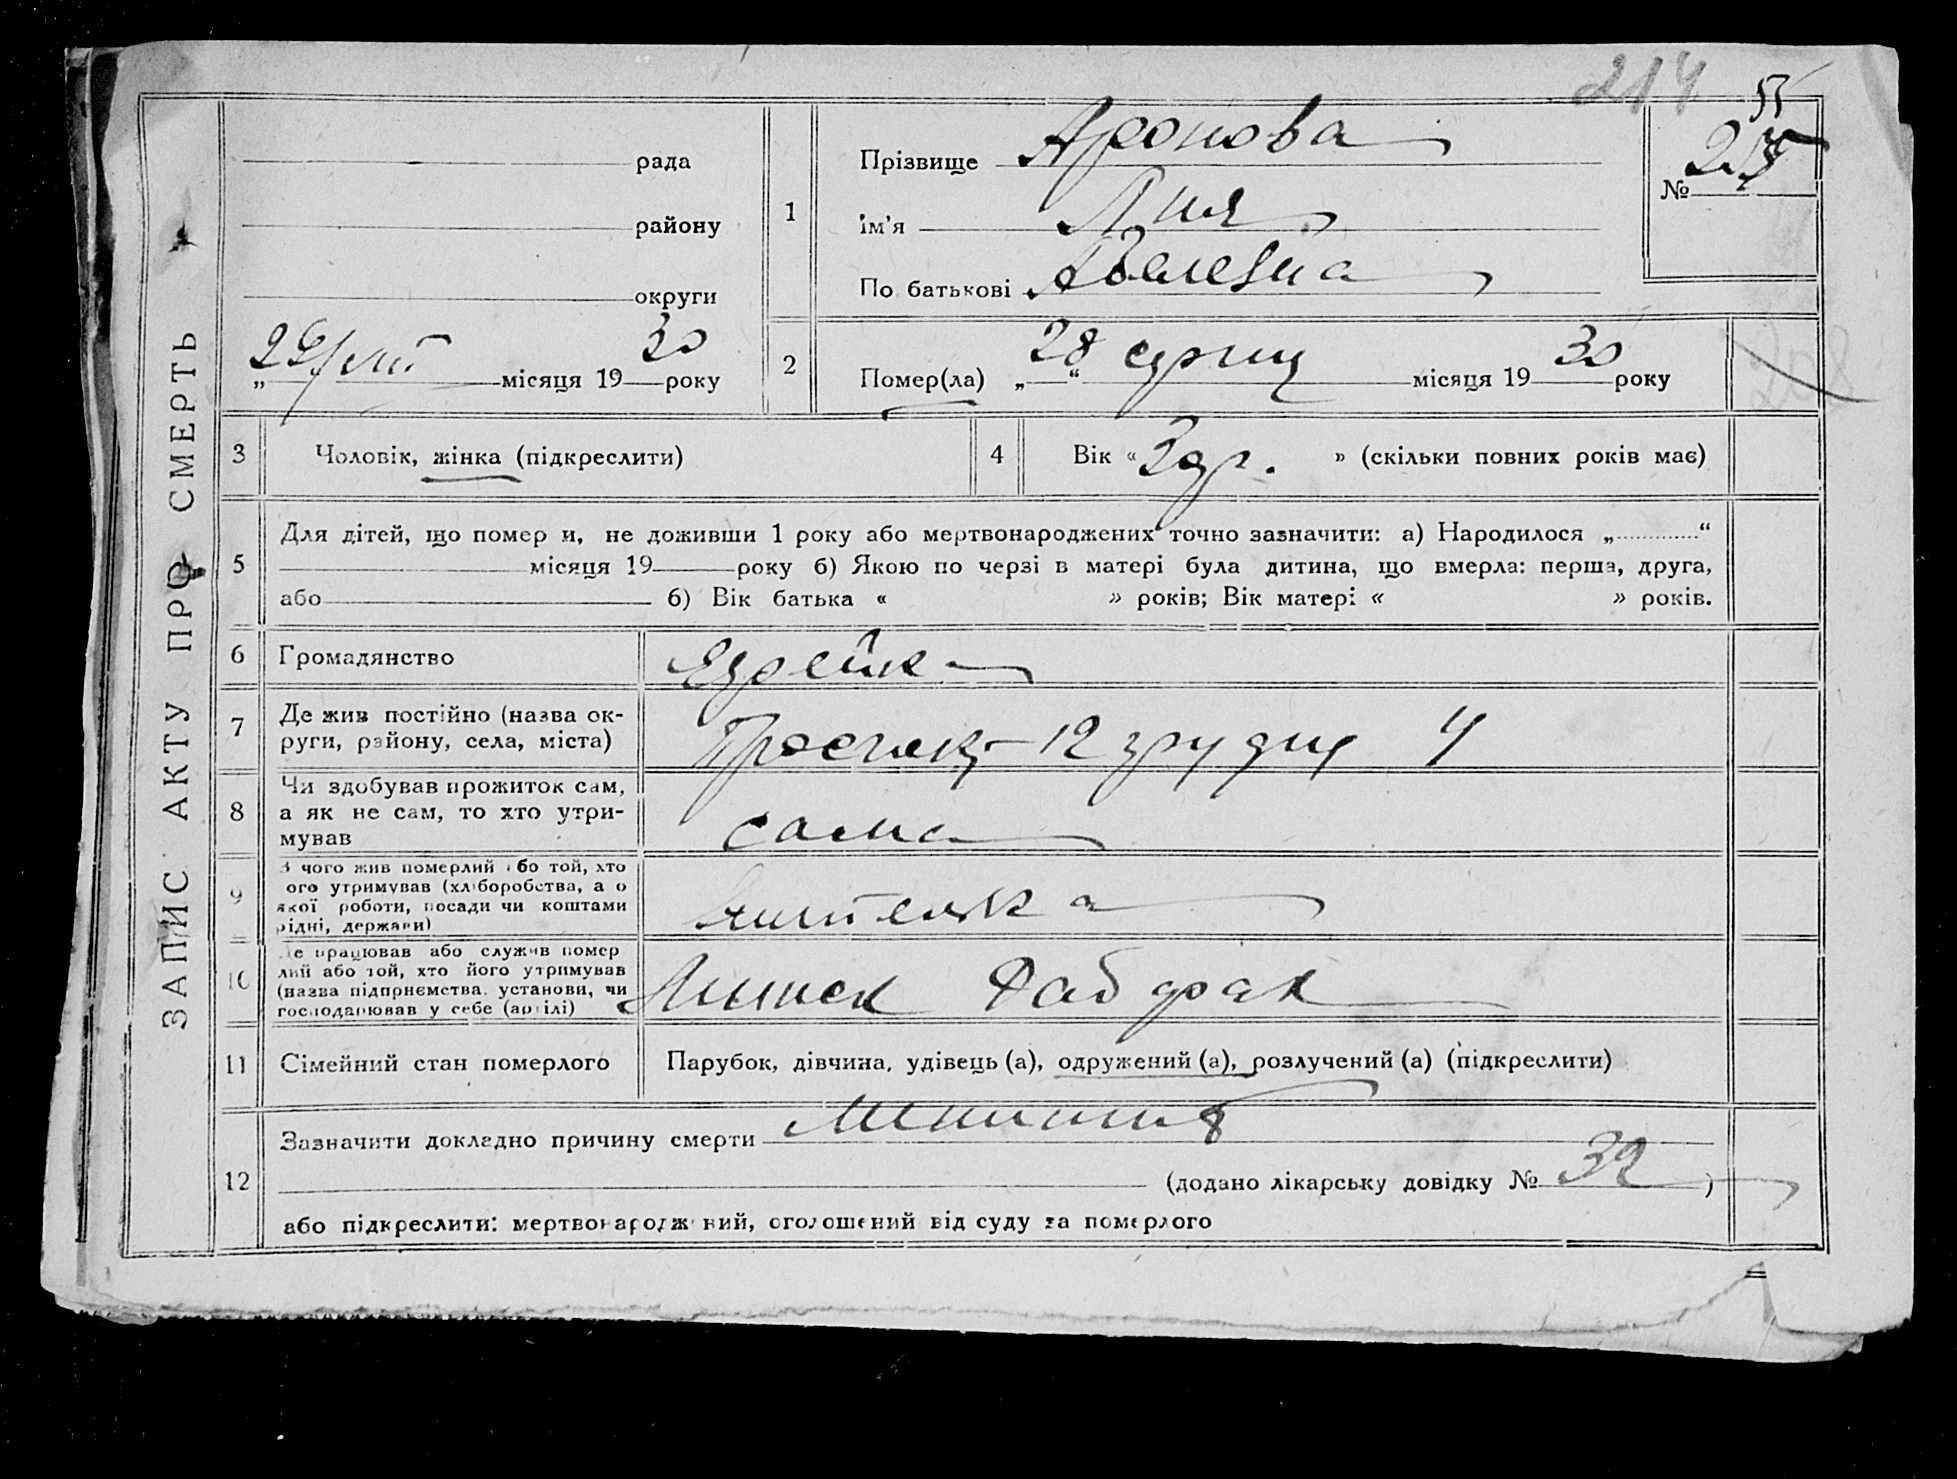 214
55
ЗАПИС АКТУ ПРО СМЕРТЬ
рада
району
округи
місяця 1930 року
1
Прізвище Аронова
Ім'я Лия
По батькові
№
2
Помер(ла) „28“ серпня місяця 1930 року
3 Чоловік, жінка (підкреслити)
4 Вік « » (скільки повних років має)
5
Для дітей, що померли, не доживши 1 року або мертвонароджених точно зазначити: а) Народилося „ “
місяця 19 року б) Якою по черзі в матері була дитина, що вмерла: перша, друга,
або б) Вік батька « » років; Вік матері « » років.
6 Громадянство Еврейка
7
Де жив постійно (назва ок-
руги, району, села, міста)
12 грудня 4
8
Чи здобував прожиток сам,
а як не сам, то хто утри-
мував
сама
9
З чого жив померлий або той, хто
його утримував (хліборобства, а о
якої роботи, посади чи коштами
рідні, держави)
учителька
10
Де працював або служив помер
лий або той, хто його утримував
(назва підприємства, установи, чи
господарював у себе (артілі)
Минск Рабфак
11 Сімейний стан померлого
Парубок, дівчина, удівець (а), одружений (а), розлучений (а) (підкреслити)
12
Зазначити докладно причину смерти Менингит
(додано лікарську довідку № 32)
або підкреслити: мертвонароджений, оголошений від суду за померлого